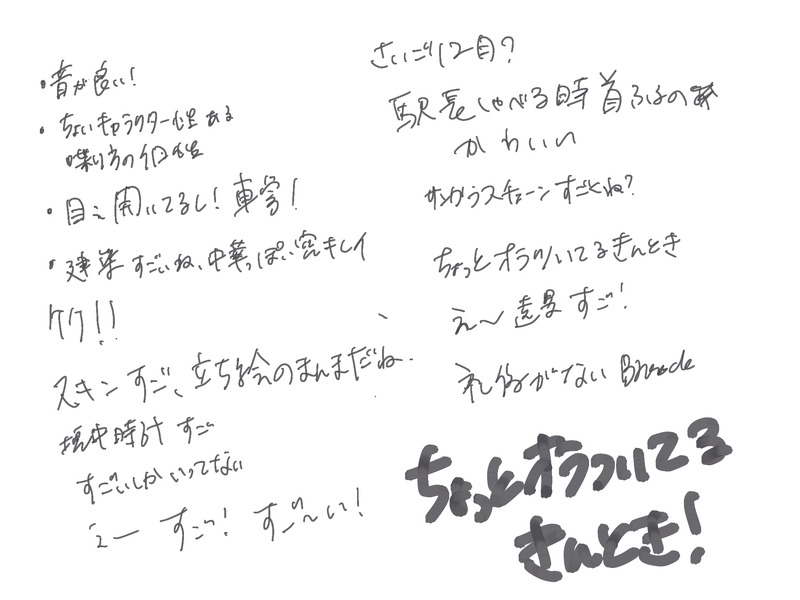 ・音が良い!
・ちょいキャラクター性ある
喋り方の個性
・目ぇ開いてるし!車掌!
・建築すごいね、中華っぽい窓キレイ
ケケ!!
スキンすご、立ち絵のまんまだね.
懐中時計 すご
すごいしかいってない
えー すご! すご〜い!
さいごり2目?
駅長しゃべる時首ふるの
かわいい
サンガラスチェーンすごくね?
ちょっとオラついてるきんとき
え〜遠景すご!
礼儀がない Broooock
ちょっとオラついてる
きんとき!